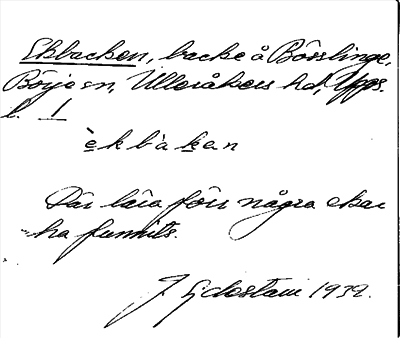 Ekbacken, backe å Bösslinge,
Börje sn, Ulleråkers hd, Upps.
l. 1
èkbàkan
Där lära förr några ekar
ha funnits.
1932.